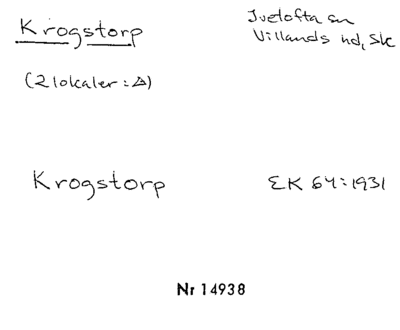 Krogstorp
Ivetofta sn
Villands hd, Sk
(2 lokaler : △)
Krogstorp
EK 64:1931
Nr 14938